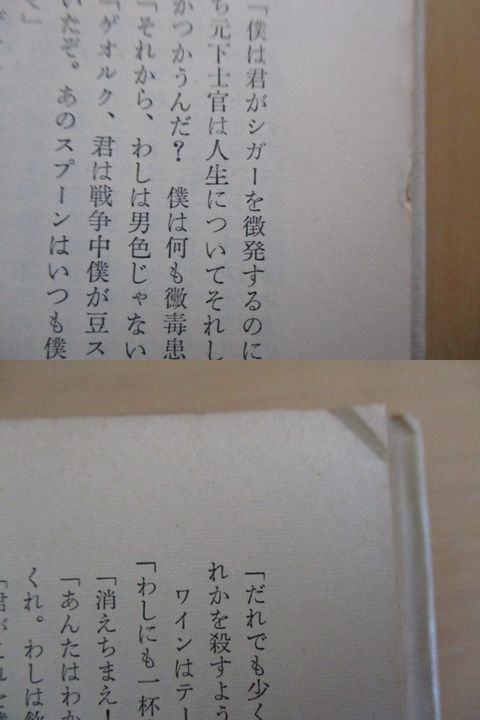 「僕は君がシガーを徴発するのに
ち元下士官は人生についてそれし
かつかうんだ？　僕は何も黴毒患
「それから、わしは男色じゃない
「ゲオルク、君は戦争中僕が豆ス
いたぞ。あのスプーンはいつも僕
「だれでも少く
れかを殺すよう
ワインはテー
「わしにも一杯
「消えちまえ！
「あんたはわか
くれ。わしは飲